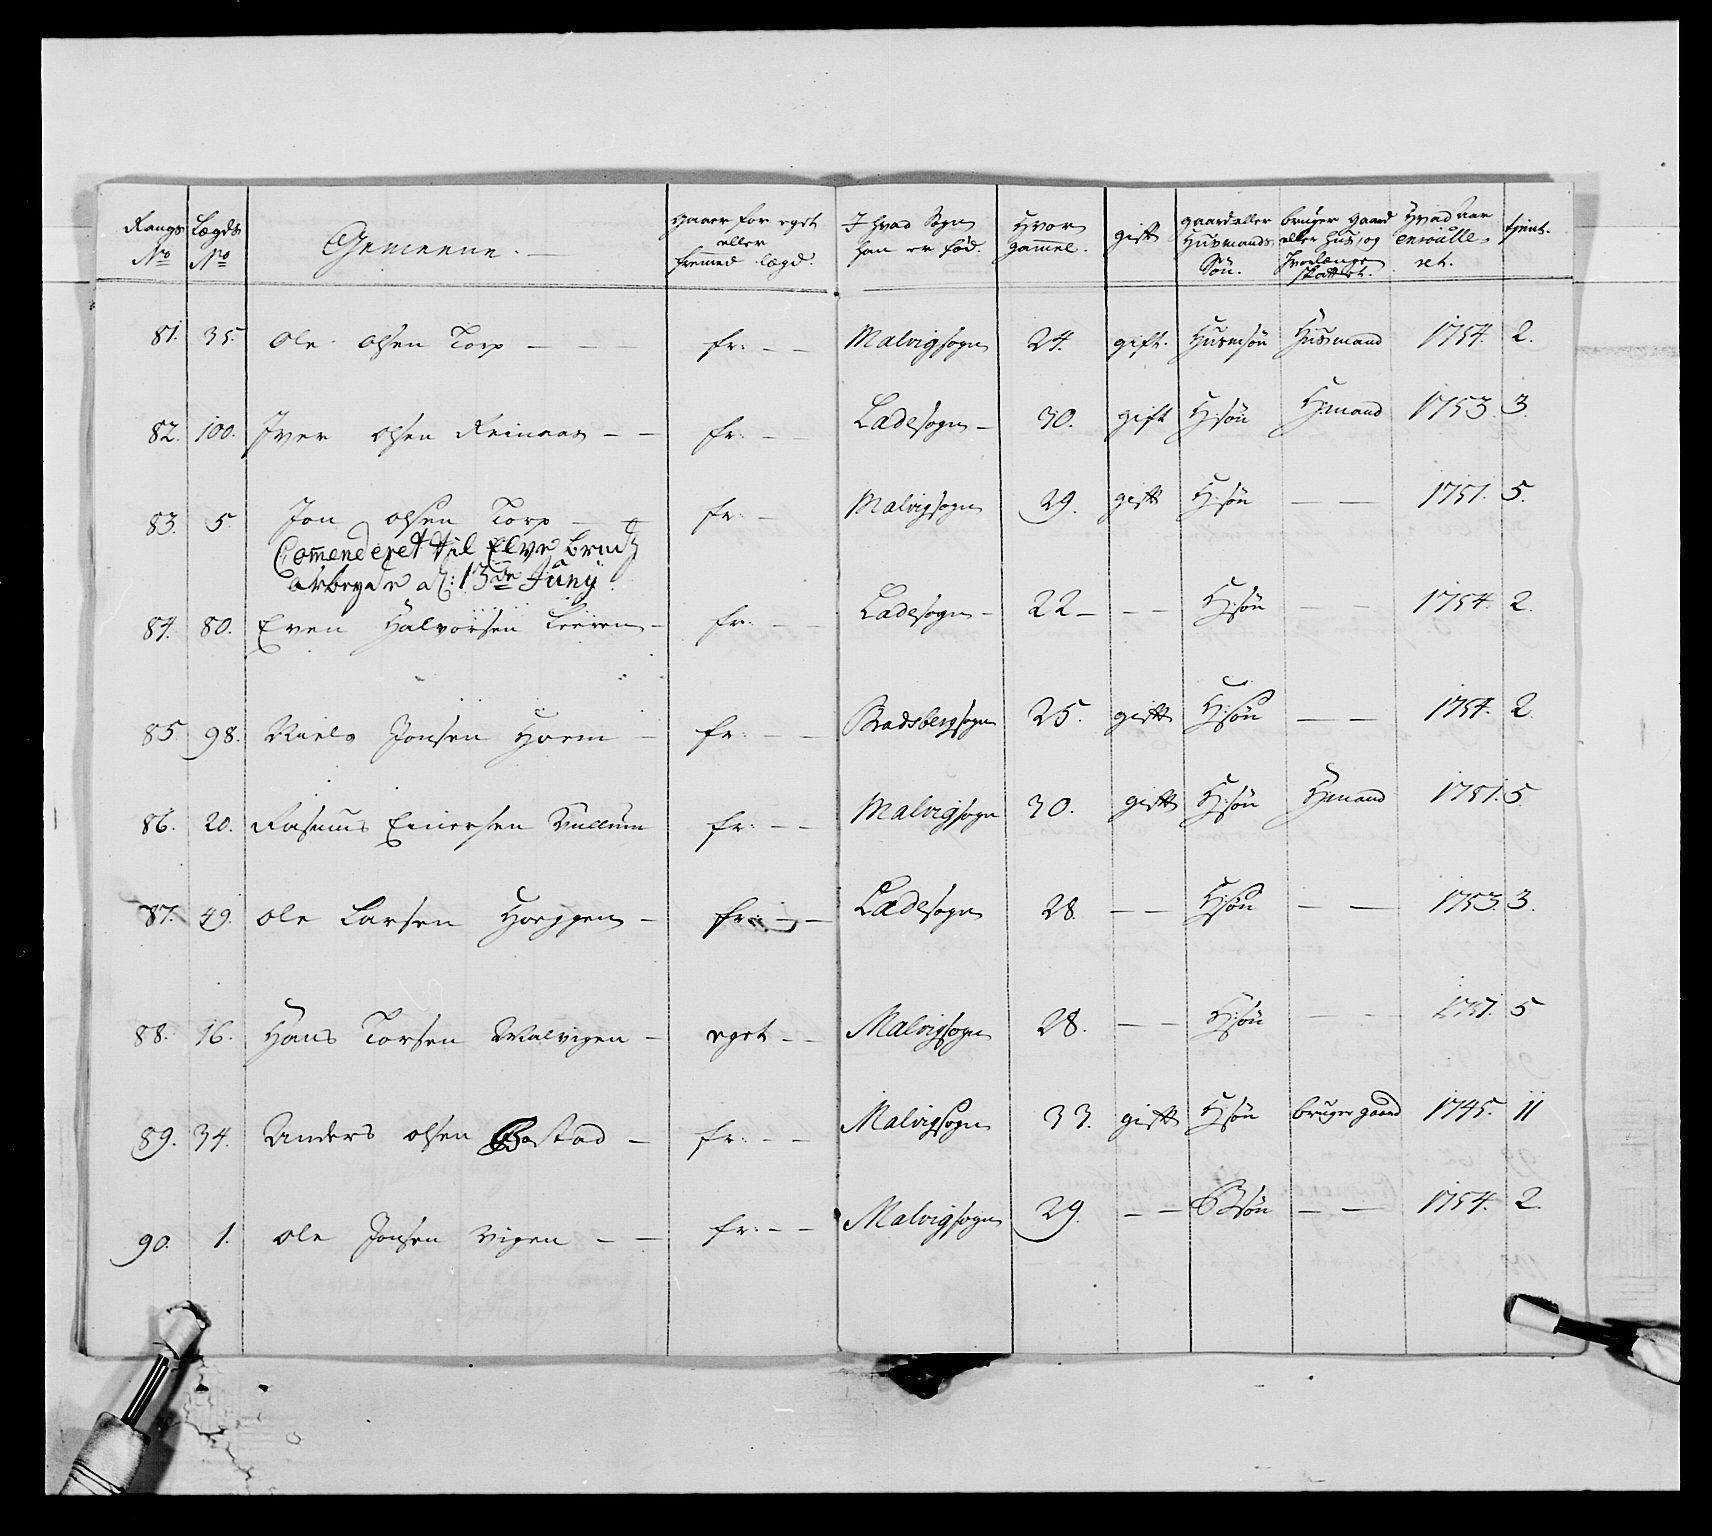 Rangs No Lægds No Gemeene. gaaer for eget eller fremmed lægd. I hvad Sogn han er fød. Hvor gammel. gift gaard eller Huusmands Søn. bruger gaard eller huus, og hvorlænge skattet. Hvad aar enroulleret. tient.
81. 35. Ole olsen Torp — — — fr: — — Malvigsogn 24. gift. Huusmsøn Huusmand 1754. 2.
82. 100. Iver olsen Reinaas — — fr: — Ladesogn — 30. gift H:søn H:mand 1753. 3.
83. 5. Jon olsen Torp — fr: — Malvigsogn 29. gift H:søn — — 1751. 5.
Comenderet til Elve brudz
arbeyde d: 13de Juny
84. 80. Even Halvorsen Leeren — fr: — — Ladesogn — 22 — — — H:søn — — 1754. 2.
85 98. Niels Jonsen Hoem — fr: — — Bradsbergsogn 25. gift H:søn — — 1754. 2.
86. 20. Rasmus Einersen Vullum fr: — — Malvigsogn 30. gift H:søn H:mand 1751. 5.
87. 49. ole Larsen Hoeggen — fr: — — Ladesogn 28. — — H:søn — — 1753. 3.
88. 16. Hans Torsen Malvigen — eget — — Malvigsogn 28. — — H:søn — — 1751. 5
89. 34. Anders olsen Bostad — fr: — — Malvigsogn 33. gift H:søn bruger gaard 1745. 11
90. 1. ole Jonsen Vigen — — fr: — — Malvigsogn 29. — — G:søn — — 1754. 2.